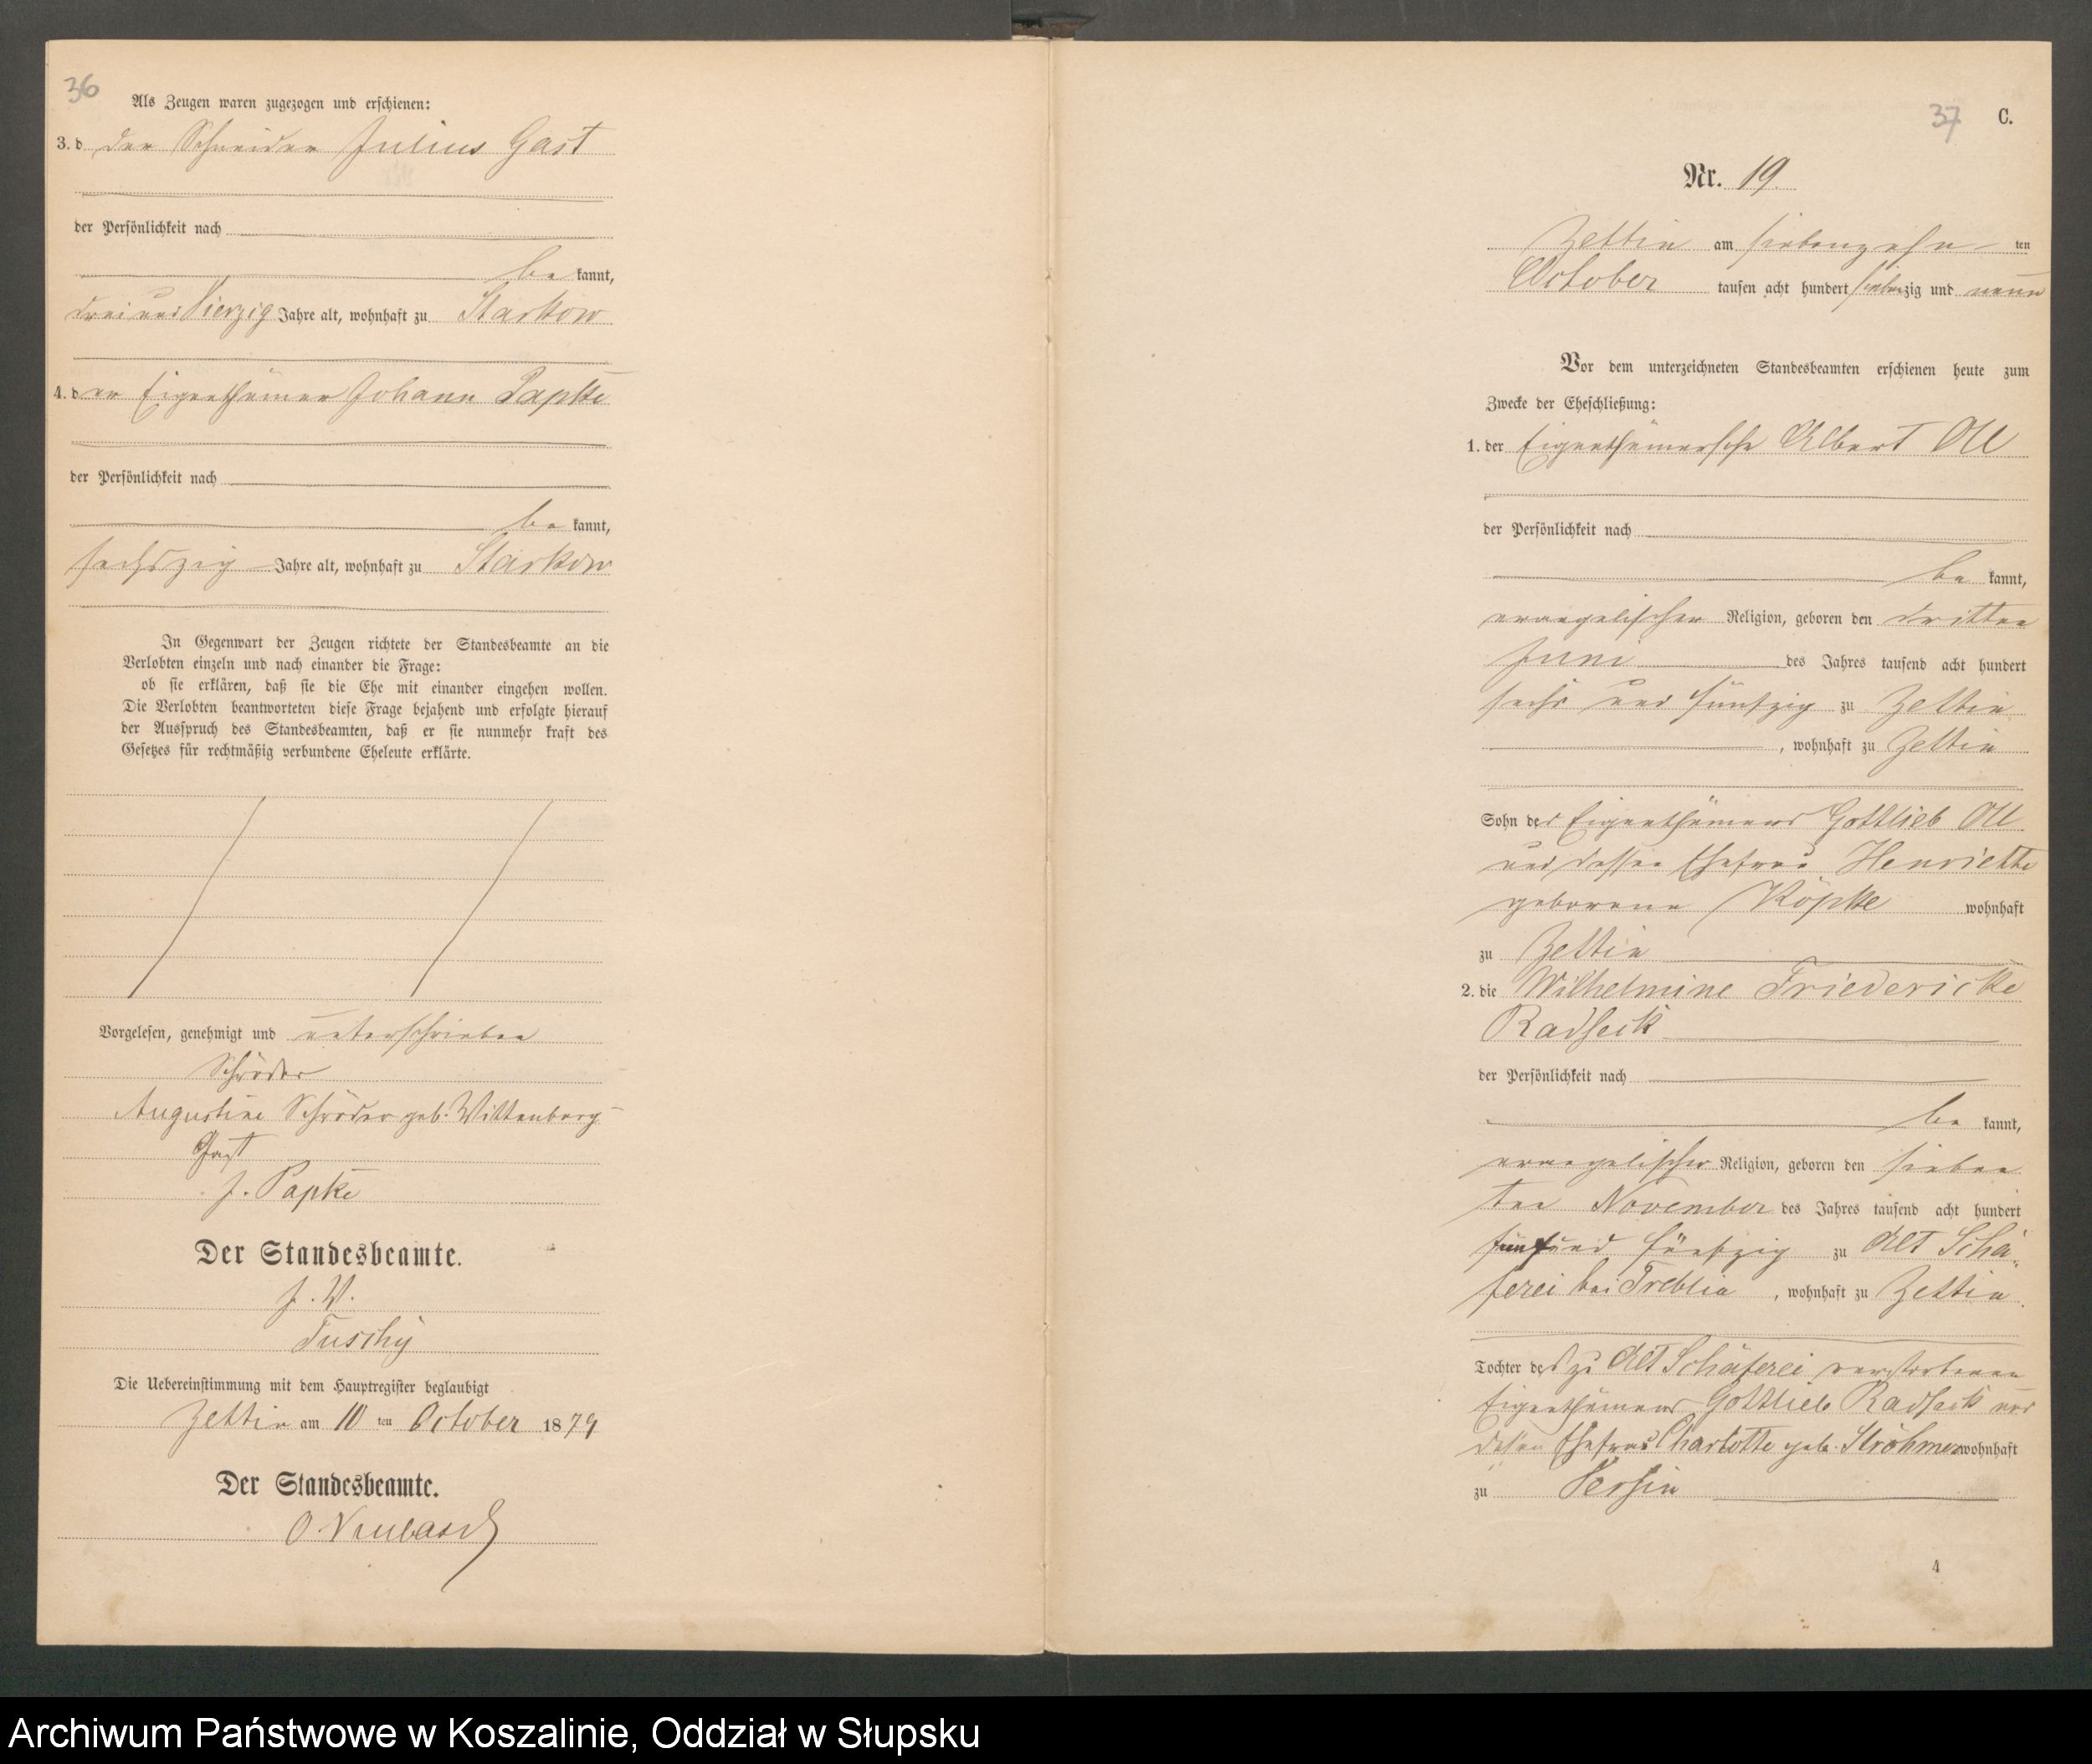 36
Als Zeugen waren zugezogen und erschienen:
3. d der Schneider Julius Gast
der Persönlichkeit nach
be kannt,
drei und Vierzig Jahre alt, wohnhaft zu Starkow
4. der Eigenthümer Johann Papke
der Persönlichkeit nach
be kannt,
sechszig Jahre alt, wohnhaft zu Starkow
In Gegenwart der Zeugen richtete der Standesbeamte an die
Verlobten einzeln und nach einander die Frage:
ob sie erklären, daß sie die Ehe mit einander eingehen wollen.
Die Verlobten beantworteten diese Frage bejahend und erfolgte hierauf
der Ausspruch des Standesbeamten, daß er sie nunmehr kraft des
Gesetzes für rechtmäßig verbundene Eheleute erklärte.
Vorgelesen, genehmigt und unterschrieben
Schröder
Augustine Schröder geb. Wittenberg
Gast
J. Papke
Der Standesbeamte.
J. V.
Tuschy
Die Uebereinstimmung mit dem Hauptregister beglaubigt
Zettin am 10 ten October 1879
Der Standesbeamte.
37 C.
Nr. 19.
Zettin am siebenzehn ten
October tausen acht hundert siebenzig und neun
Vor dem unterzeichneten Standesbeamten erschienen heute zum
Zwecke der Eheschließung:
1. der Eigenthümersohn Albert Oll
der Persönlichkeit nach
be kannt,
evangelischer Religion, geboren den dritten
Juni des Jahres tausend acht hundert
sechs und fünfzig zu Zettin
, wohnhaft zu Zettin
Sohn des Eigenthümers Gottlieb Oll
und dessen Ehefrau Henriette
geborene Köpke wohnhaft
zu Zettin
2. die Wilhelmine Friedericke
Radseck
der Persönlichkeit nach
be kannt,
evangelischer Religion, geboren den sieben
ten November des Jahres tausend acht hundert
fünf und fünfzig zu Alt Schä-
ferei bei Treblin, wohnhaft zu Zettin.
Tochter des zu Alt Schäferei verstorbenen
Eigenthümers Gottlieb Radseck und
dessen Ehefrau Charlotte geb. Ströhmer wohnhaft
zu Versin
4
Archiwum Państwowe w Koszalinie, Oddział w Słupsku